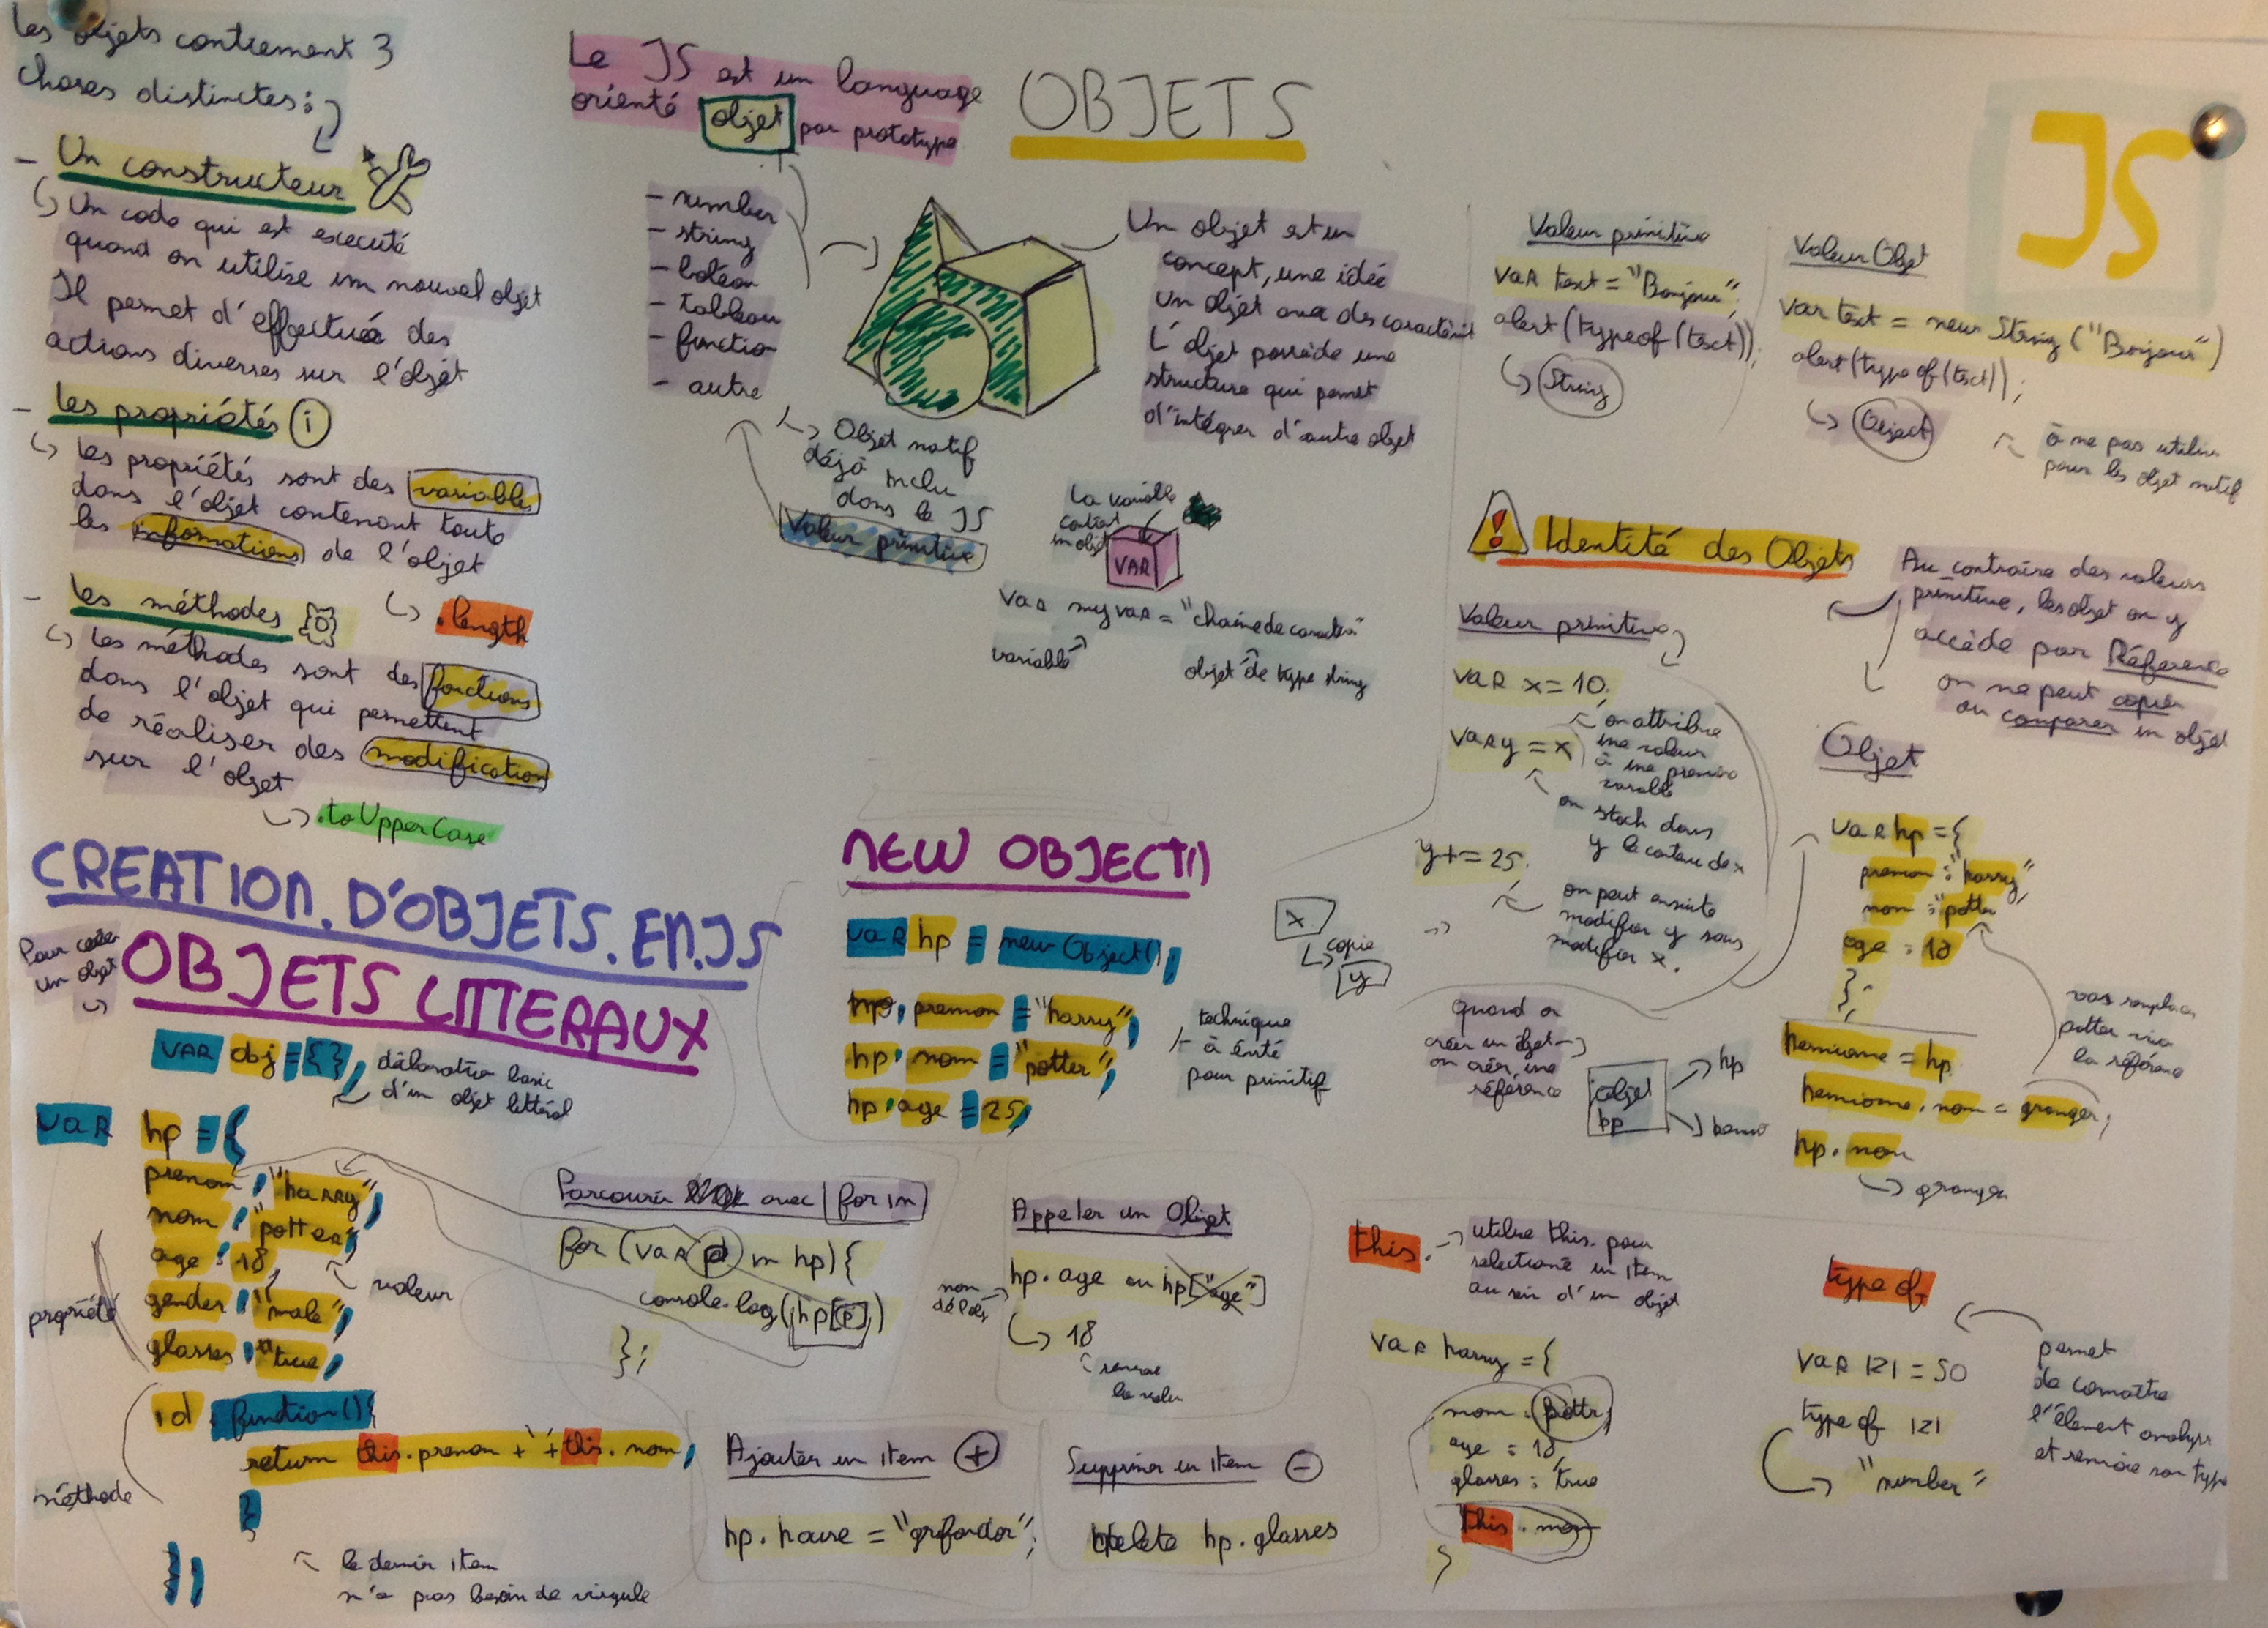 Les objets contiennent 3
choses distinctes :
- Un constructeur
Un code qui est executé
quand on utilise un nouvel objet
Il permet d'effectué des
actions diverses sur l'objet
- les propriétés i
les propriétés sont des variable
dans l'objet contenant toute
les informations de l'objet
.length
- les méthodes
les méthodes sont des fonctions
dans l'objet qui permettent
de réaliser des modification
sur l'objet
.toUpperCase
Le JS est un language
orienté objet par prototype
OBJETS
JS
- number
- string
- boléan
- tableau
- function
- autre
Objet natif
déjà inclu
dans le JS
Valeur primitive
Un objet est un
concept, une idée
Un objet aura des
L'objet possède une
structure qui permet
d'intégrer d'autre objet
la variable
contient
un objet
VAR
var myvar = "chaine de caractère"
variable
objet de type string
Valeur primitive
var text = "Bonjour";
alert(typeof(text));
String
Valeur Objet
var text = new String("Bonjour")
alert(typeof(text));
Object
à ne pas utiliser
pour les objet natif
! Identité des Objets
Au contraire des valeurs
primitive, les objet on y
accède par Référence
on ne peut copier
ou comparer un objet
Valeur primitive
var x = 10.
on attribue
une valeur
à une première
variable
var y = x
on stock dans
y le contenu de x
y += 25.
on peut ensuite
modifier y sans
modifier x.
x
copie
y
Objet
var hp = {
prenom : "harry",
nom : "potter
age : 18
};
hermione = hp
hermione.nom = granger;
hp.nom
granger
vas remplacer
potter via
la référence
quand on
créer un objet
on créer une
référence
objet
hp
hp
CREATION.D'OBJETS.EN.JS
Pour créer
un objet
OBJETS LITTERAUX
VAR obj = {};
déclaration basic
d'un objet littéral
var hp = {
prenom : "harry",
nom : "potter",
age : 18,
gender : "male",
glasses : "true,
id : function(){
return this.prenom + " " + this.nom;
}
};
propriété
valeur
méthode
le dernier item
n'a pas besoin de virgule
NEW OBJECT()
var hp = new Object();
hp.prenom = "harry";
hp.nom = "potter";
hp.age = 25;
technique
à évité
pour primitif
Parcourir avec for in
for (var p in hp){
console.log(hp[p])
};
Appeler un Objet
hp.age ou hp["age"]
18
renvoie
la valeur
Ajouter un item +
hp.house = "grifondor";
Supprimer un item -
delete hp.glasses
this.
utilise this. pour
selectioné un item
au sein d'un objet
var harry = {
nom : potter,
age : 18,
glasses : true
this.nom
}
type of
var 121 = 50
type of 121
"number"
permet
de connaitre
l'élement analyser
et renvoie son type